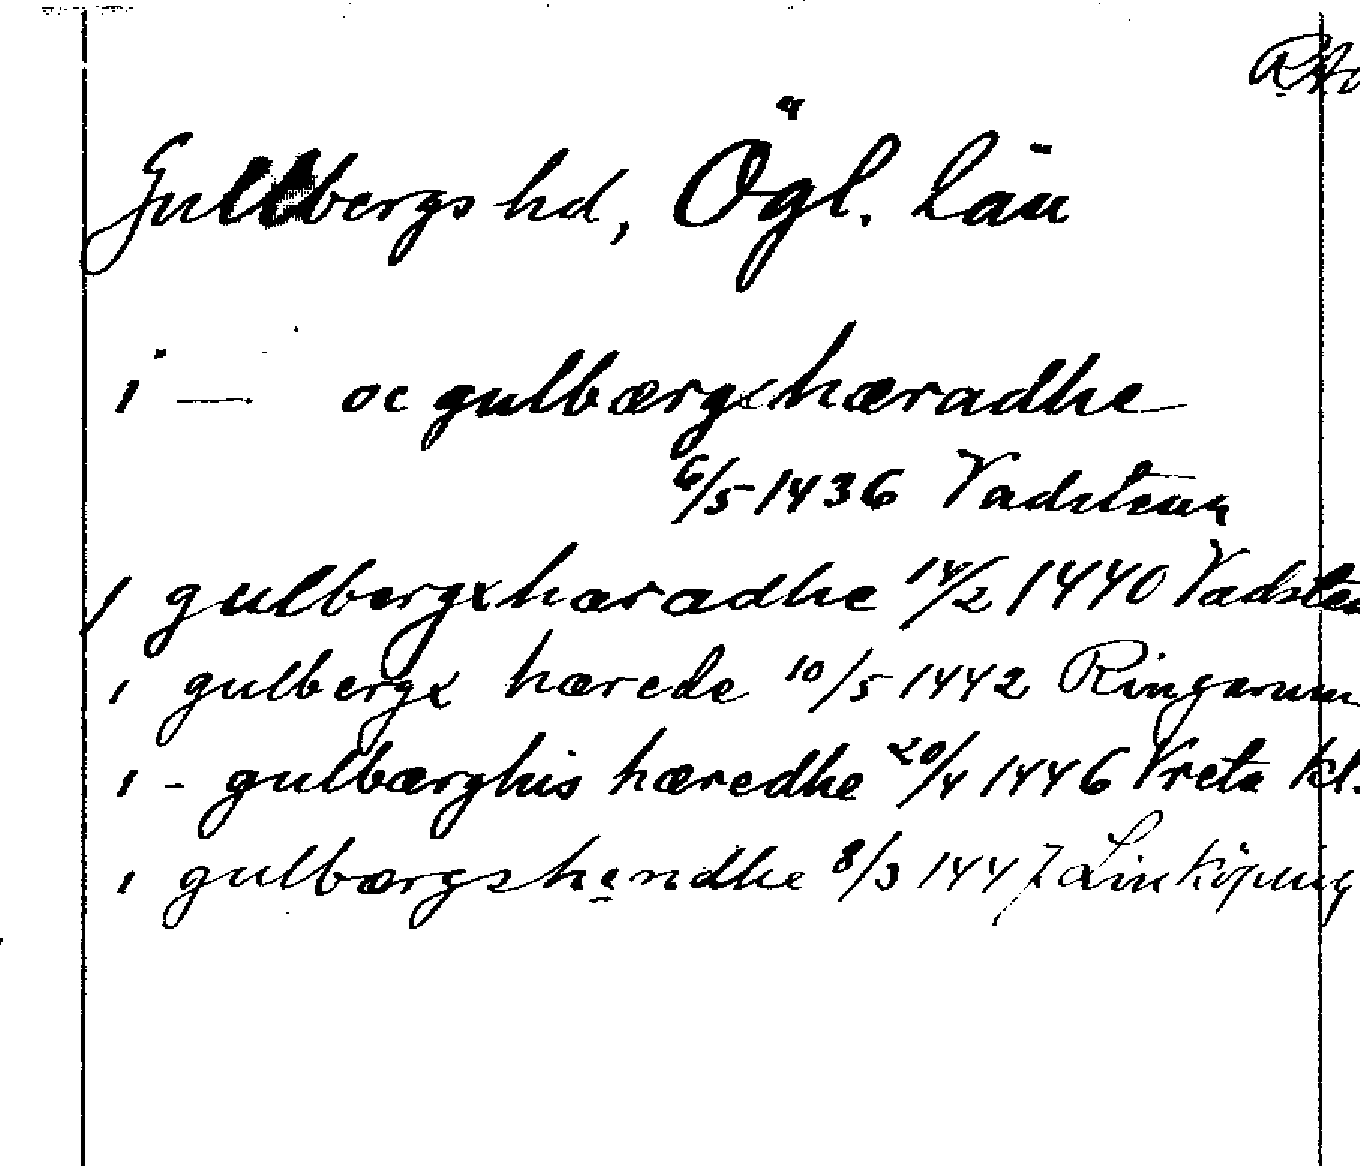 Gullbergs hd, Ögl. län
i — oc gulbærgxhæradhe
6/5 1436 Vadstena
j gulbergxhæradhe 14/2 1440 Vadsten
i gulbergx hærede 10/5 1442 Ringarum
i - gulbærghis hæredhe 20/4 1446 Vreta kl.
i gulbærgshendhe 8/3 1447 Linköping